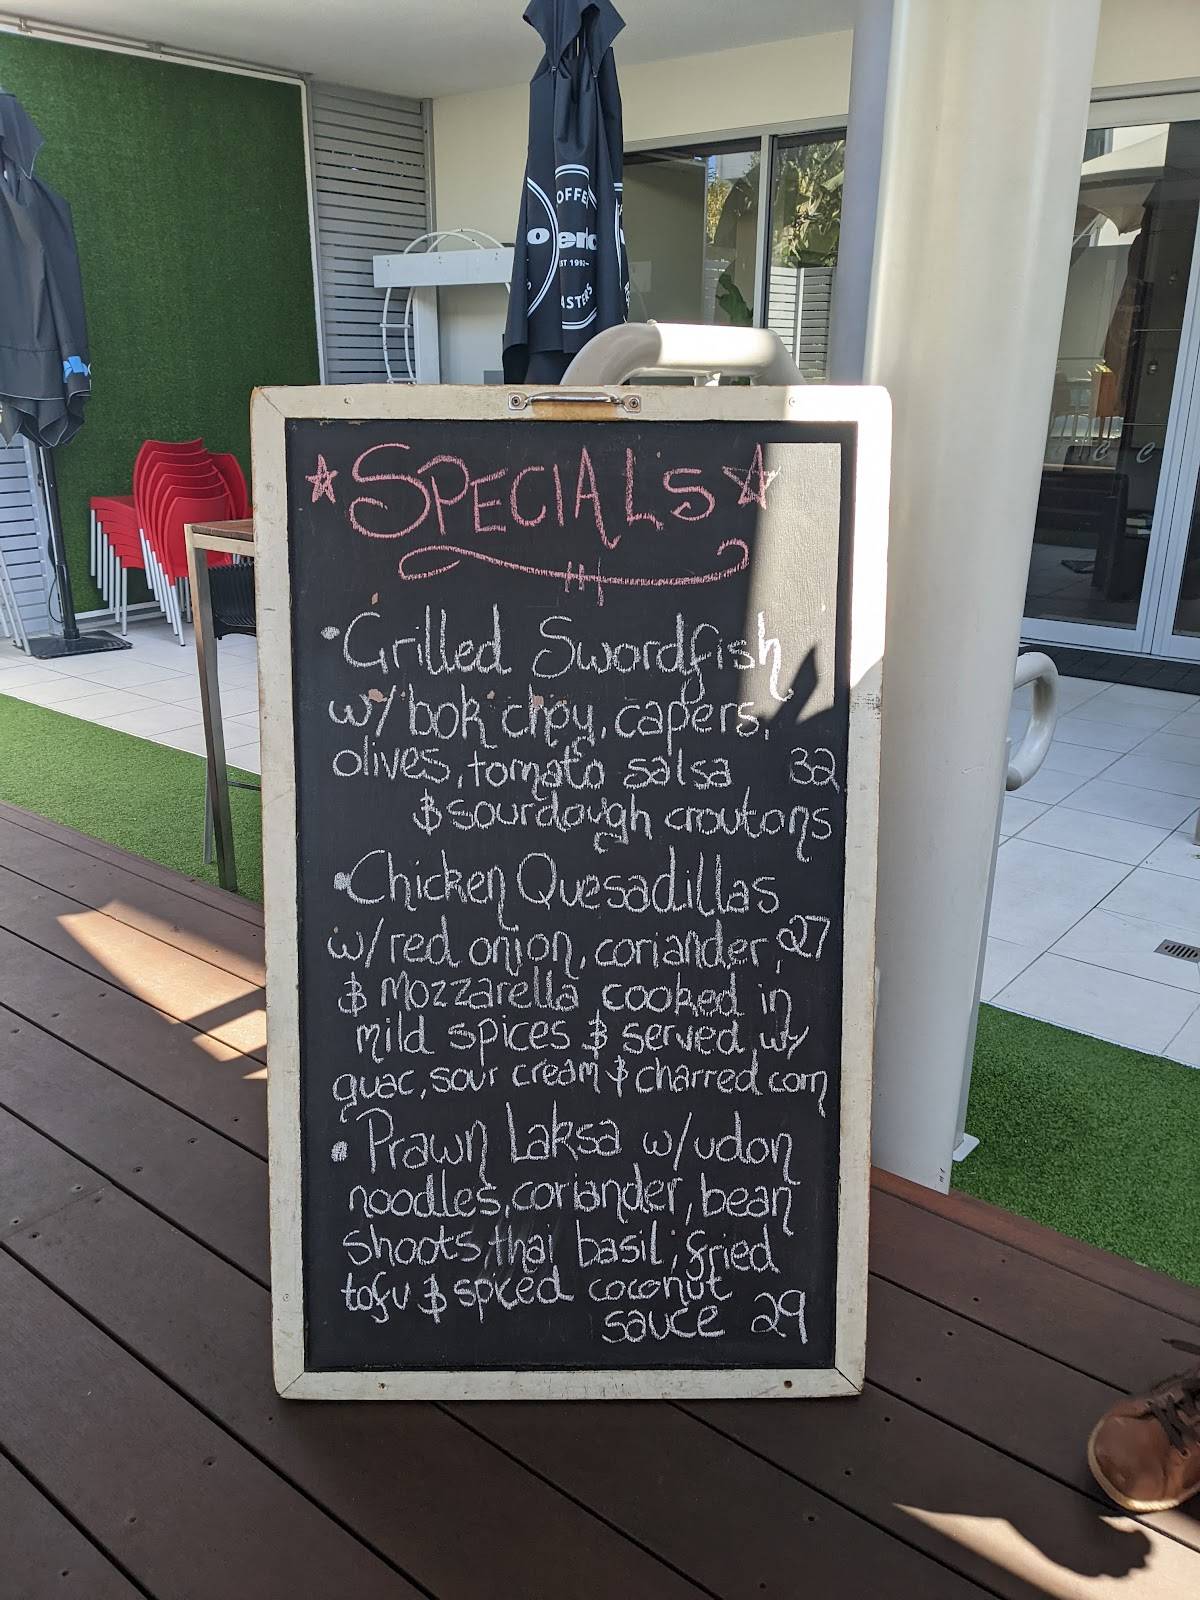 OFFE
o
enc
EST 1992
ASTERS
SPECIAL'S
• Grilled Swordfish
w/ bok choy, capers,
olives, tomato salsa 32
& sourdough croutons
• Chicken Quesadillas
w/ red onion, coriander, 27
& Mozzarella cooked in
mild spices & served w/
guac, sour cream & charred corn
• Prawn Laksa w/ udon
noodles, coriander, bean
shoots, thai basil, fried
tofu & spiced coconut
sauce 29
C C